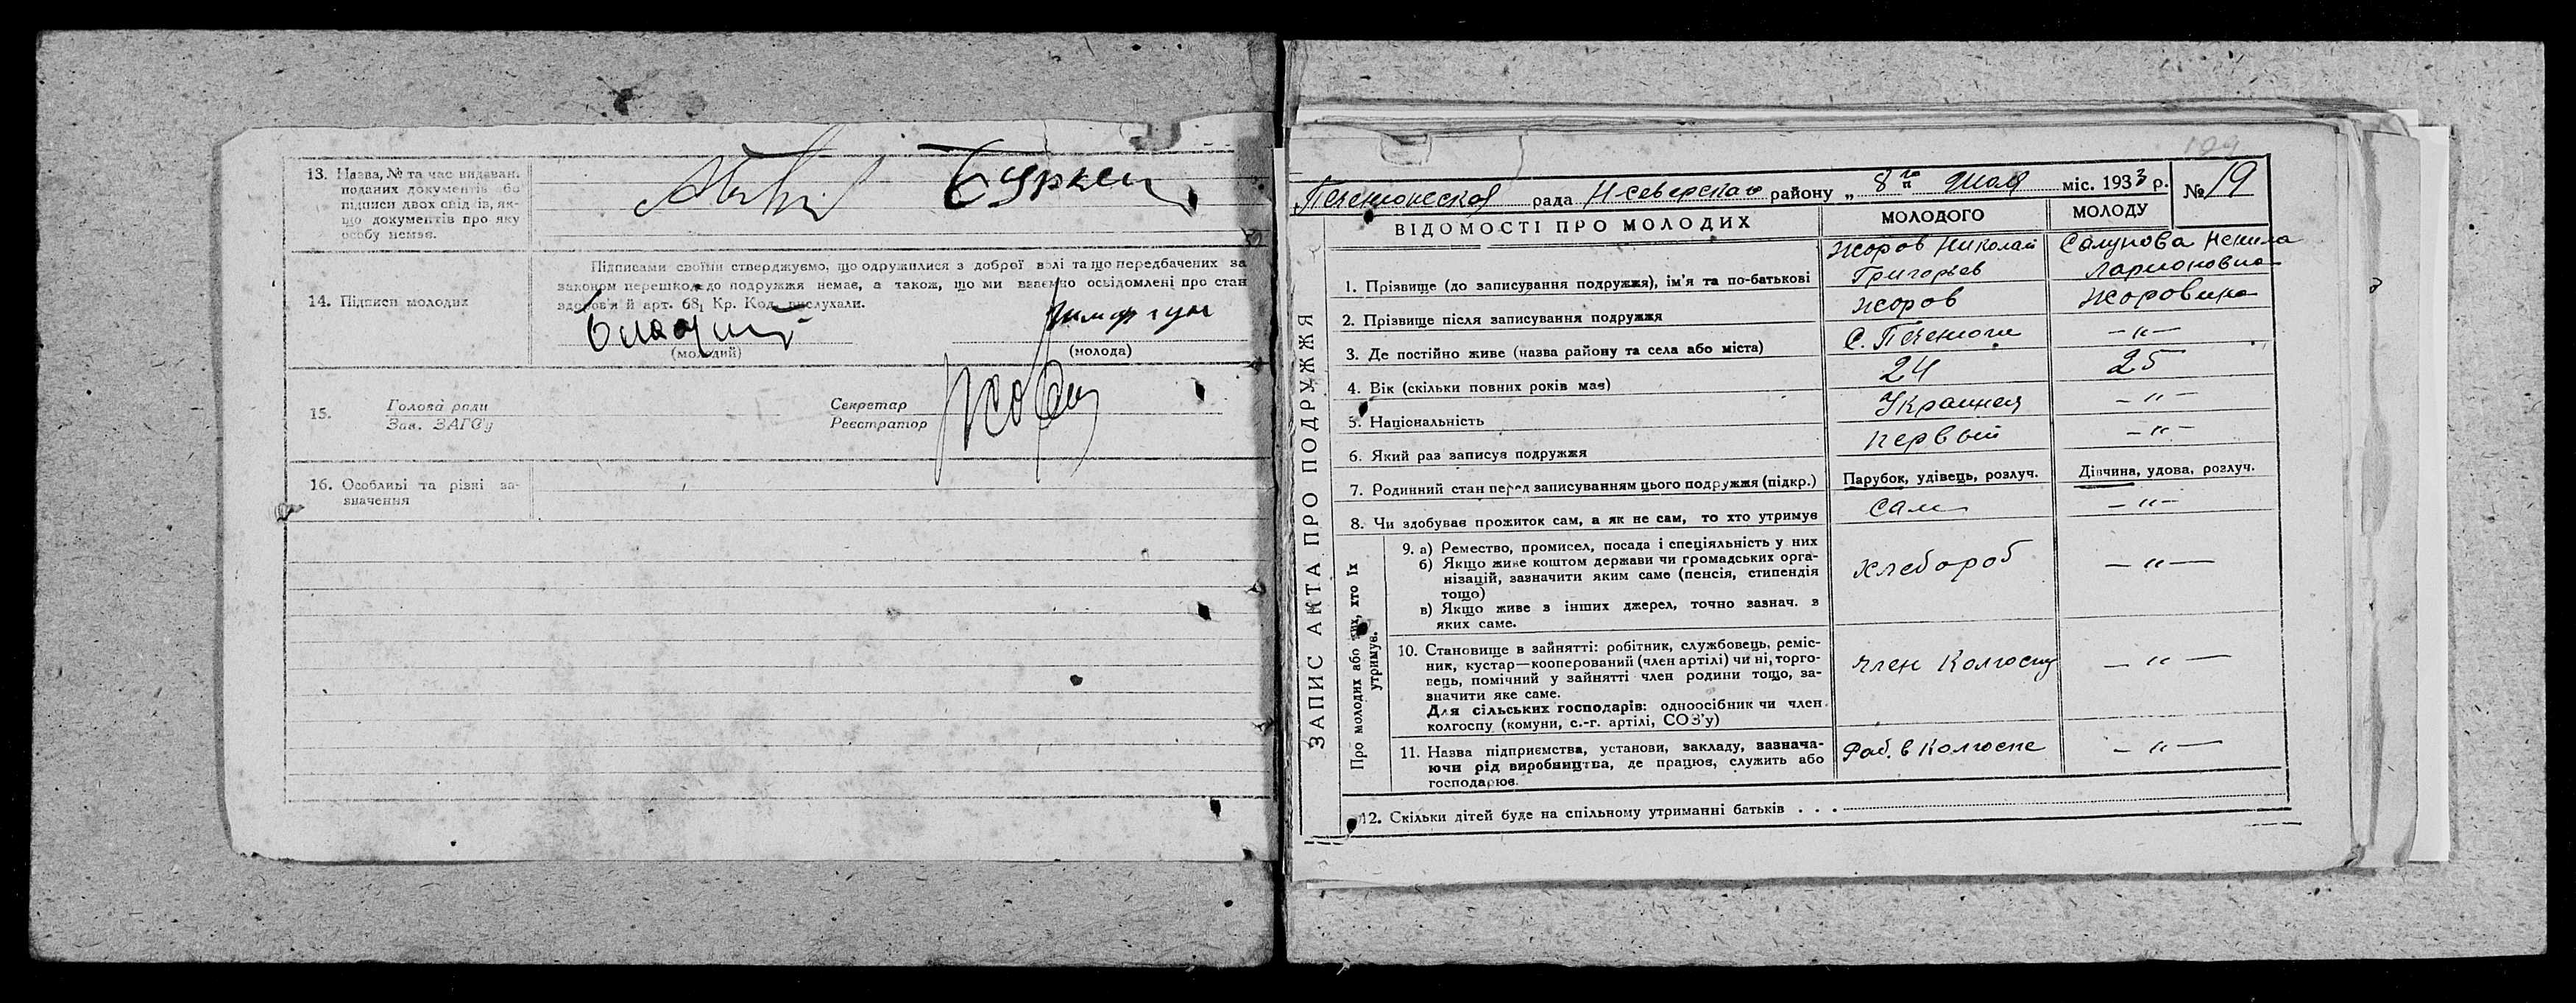 13. Назва, № та час видаван.
поданих документів або
підписи двох свідків, як-
що документів про яку
особу немає.
Підписами своїми стверджуємо, що одружилися з доброї волі та що передбачених за
законом перешкод до подружжя немає, а також, що ми взаємно освідомлені про стан
здоров'я й арт. 68₁ Кр. Код. вислухали.
14. Підписи молодих
(молодий) (молода)
15. Голова ради
Зав. ЗАГС'у
Секретар
Реєстратор
16. Особливі та різні за-
значення
129
Печенюгская рада Н-северского району „ 8го " Июля міс. 1933 р. № 19
ЗАПИС АКТА ПРО ПОДРУЖЖЯ
ВІДОМОСТІ ПРО МОЛОДИХ МОЛОДОГО МОЛОДУ
1. Прізвище (до записування подружжя), ім'я та по-батькові
Жоров Николай
Григорьев
Ненила
Ларионовна
2. Прізвище після записування подружжя Жоров
3. Де постійно живе (назва району та села або міста) С. Печенюги —"—
4. Вік (скільки повних років має) 24 25
5. Національність —"—
6. Який раз записує подружжя первый —"—
7. Родинний стан перед записуванням цього подружжя (підкр.) Парубок, удівець, розлуч. Дівчина, удова, розлуч.
8. Чи здобуває прожиток сам, а як не сам, то хто утримує сам —"—
Про молодих або тих, хто їх утримує.
9. а) Ремество, промисел, посада і спеціяльність у них
б) Якщо живе коштом держави чи громадських орга-
нізацій, зазначити яким саме (пенсія, стипендія
тощо)
в) Якщо живе з інших джерел, точно зазнач. з
яких саме.
хлебороб —"—
10. Становище в зайнятті: робітник, службовець, реміс-
ник, кустар—кооперований (член артілі) чи ні, торго-
вець, помічний у зайнятті член родини тощо, за-
значити яке саме.
Для сільських господарів: одноосібник чи член
колгоспу (комуни, с.-г. артілі, СОЗ'у)
член Колгоспу —"—
11. Назва підприємства, установи, закладу, зазнача-
ючи рід виробництва, де працює, служить або
господарює.
Раб. в Колгоспе —"—
12. Скільки дітей буде на спільному утриманні батьків . . .